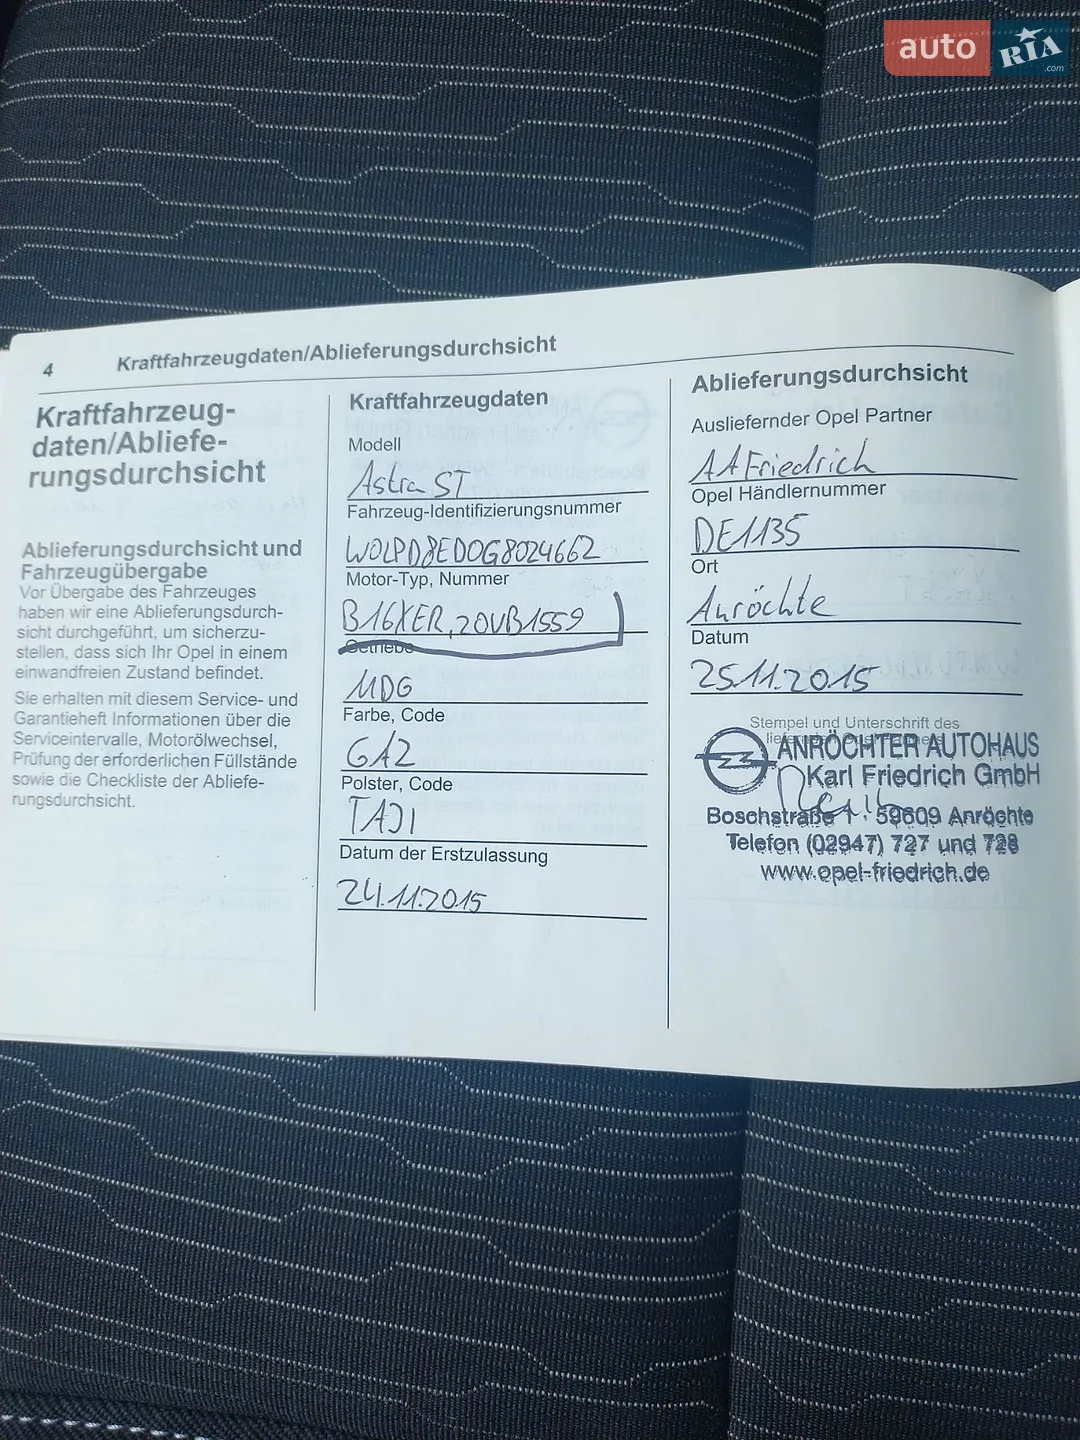 auto RIA.com
4 Kraftfahrzeugdaten/Ablieferungsdurchsicht
Kraftfahrzeug-
daten/Abliefe-
rungsdurchsicht
Ablieferungsdurchsicht und
Fahrzeugübergabe
Vor Übergabe des Fahrzeuges
haben wir eine Ablieferungsdurch-
sicht durchgeführt, um sicherzu-
stellen, dass sich Ihr Opel in einem
einwandfreien Zustand befindet.
Sie erhalten mit diesem Service- und
Garantieheft Informationen über die
Serviceintervalle, Motorölwechsel,
Prüfung der erforderlichen Füllstände
sowie die Checkliste der Abliefe-
rungsdurchsicht.
Kraftfahrzeugdaten
Modell
Astra ST
Fahrzeug-Identifizierungsnummer
W0LPD8ED0G8024662
Motor-Typ, Nummer
B16XER, 20VB1559
Getriebe
MDG
Farbe, Code
GAZ
Polster, Code
TAJI
Datum der Erstzulassung
24.11.2015
Ablieferungsdurchsicht
Ausliefernder Opel Partner
AA Friedrich
Opel Händlernummer
DE1135
Ort
Anröchte
Datum
25.11.2015
Stempel und Unterschrift des
ANRÖCHTER AUTOHAUS
Karl Friedrich GmbH
Boschstraße 1 · 59609 Anröchte
Telefon (02947) 727 und 728
www.opel-friedrich.de